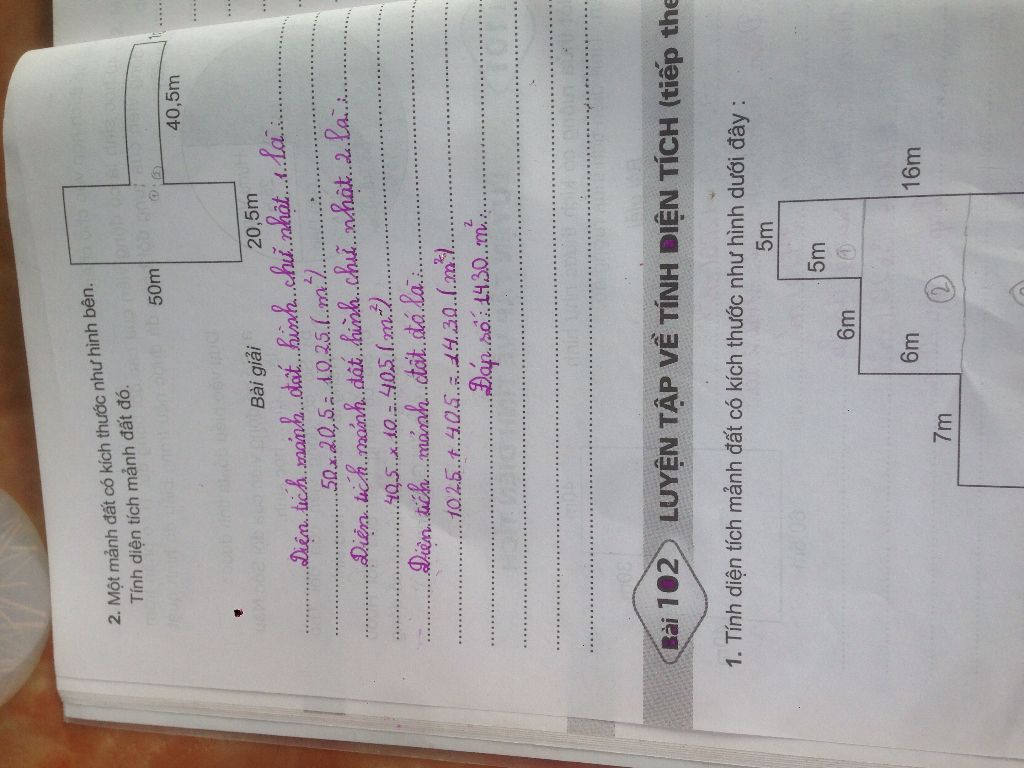 2. Một mảnh đất có kích thước như hình bên.
Tính diện tích mảnh đất đó.
50m
20,5m
40,5m
① ②
Bài giải
Diện tích mảnh đất hình chữ nhật 1 là:
50 x 20,5 = 1025 (m²)
Diện tích mảnh đất hình chữ nhật 2 là:
40,5 x 10 = 405 (m²)
Diện tích mảnh đất đó là:
1025 + 405 = 1430 (m²)
Đáp số: 1430 m²
Bài 102 LUYỆN TẬP VỀ TÍNH DIỆN TÍCH (tiếp the
1. Tính diện tích mảnh đất có kích thước như hình dưới đây :
5m
5m
①
6m
16m
6m
②
7m